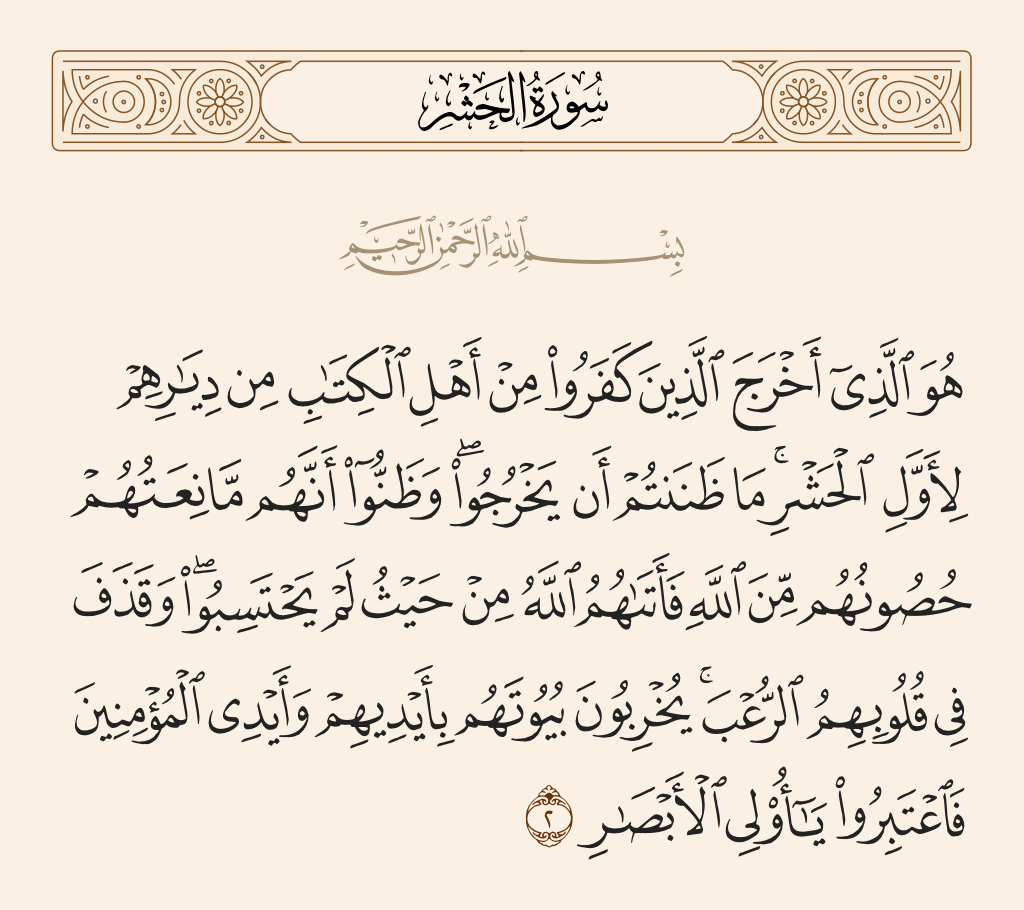 سُورَةُ الحَشْرِ
بِسْمِ ٱللَّهِ ٱلرَّحْمَٰنِ ٱلرَّحِيمِ
هُوَ ٱلَّذِىٓ أَخْرَجَ ٱلَّذِينَ كَفَرُوا۟ مِنْ أَهْلِ ٱلْكِتَـٰبِ مِن دِيَـٰرِهِمْ
لِأَوَّلِ ٱلْحَشْرِ ۚ مَا ظَنَنتُمْ أَن يَخْرُجُوا۟ ۖ وَظَنُّوٓا۟ أَنَّهُم مَّانِعَتُهُمْ
حُصُونُهُم مِّنَ ٱللَّهِ فَأَتَىٰهُمُ ٱللَّهُ مِنْ حَيْثُ لَمْ يَحْتَسِبُوا۟ ۖ وَقَذَفَ
فِى قُلُوبِهِمُ ٱلرُّعْبَ ۚ يُخْرِبُونَ بُيُوتَهُم بِأَيْدِيهِمْ وَأَيْدِى ٱلْمُؤْمِنِينَ
فَٱعْتَبِرُوا۟ يَـٰٓأُو۟لِى ٱلْأَبْصَـٰرِ ٢